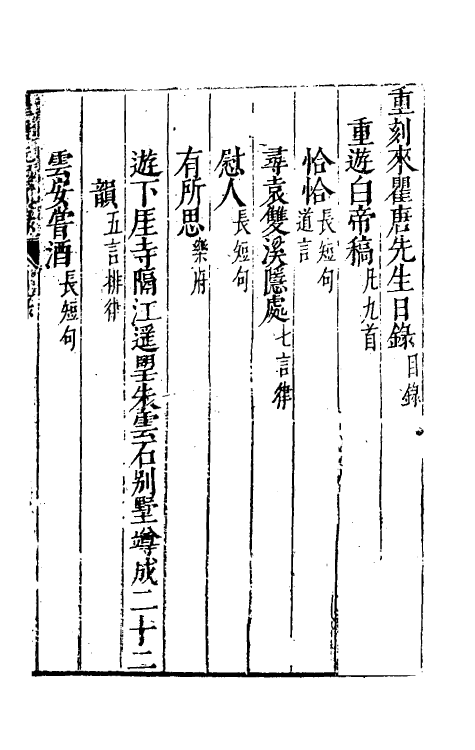 重刻來瞿唐先生日錄目錄
重遊白帝稿凡九首
恰恰長短句道言
尋袁雙溪隱處七言律
慰人長短句
有所思樂府
遊下厓寺隔江遥望朱雲石别墅竚成二十二
韻五言排律
雲安嘗酒長短句